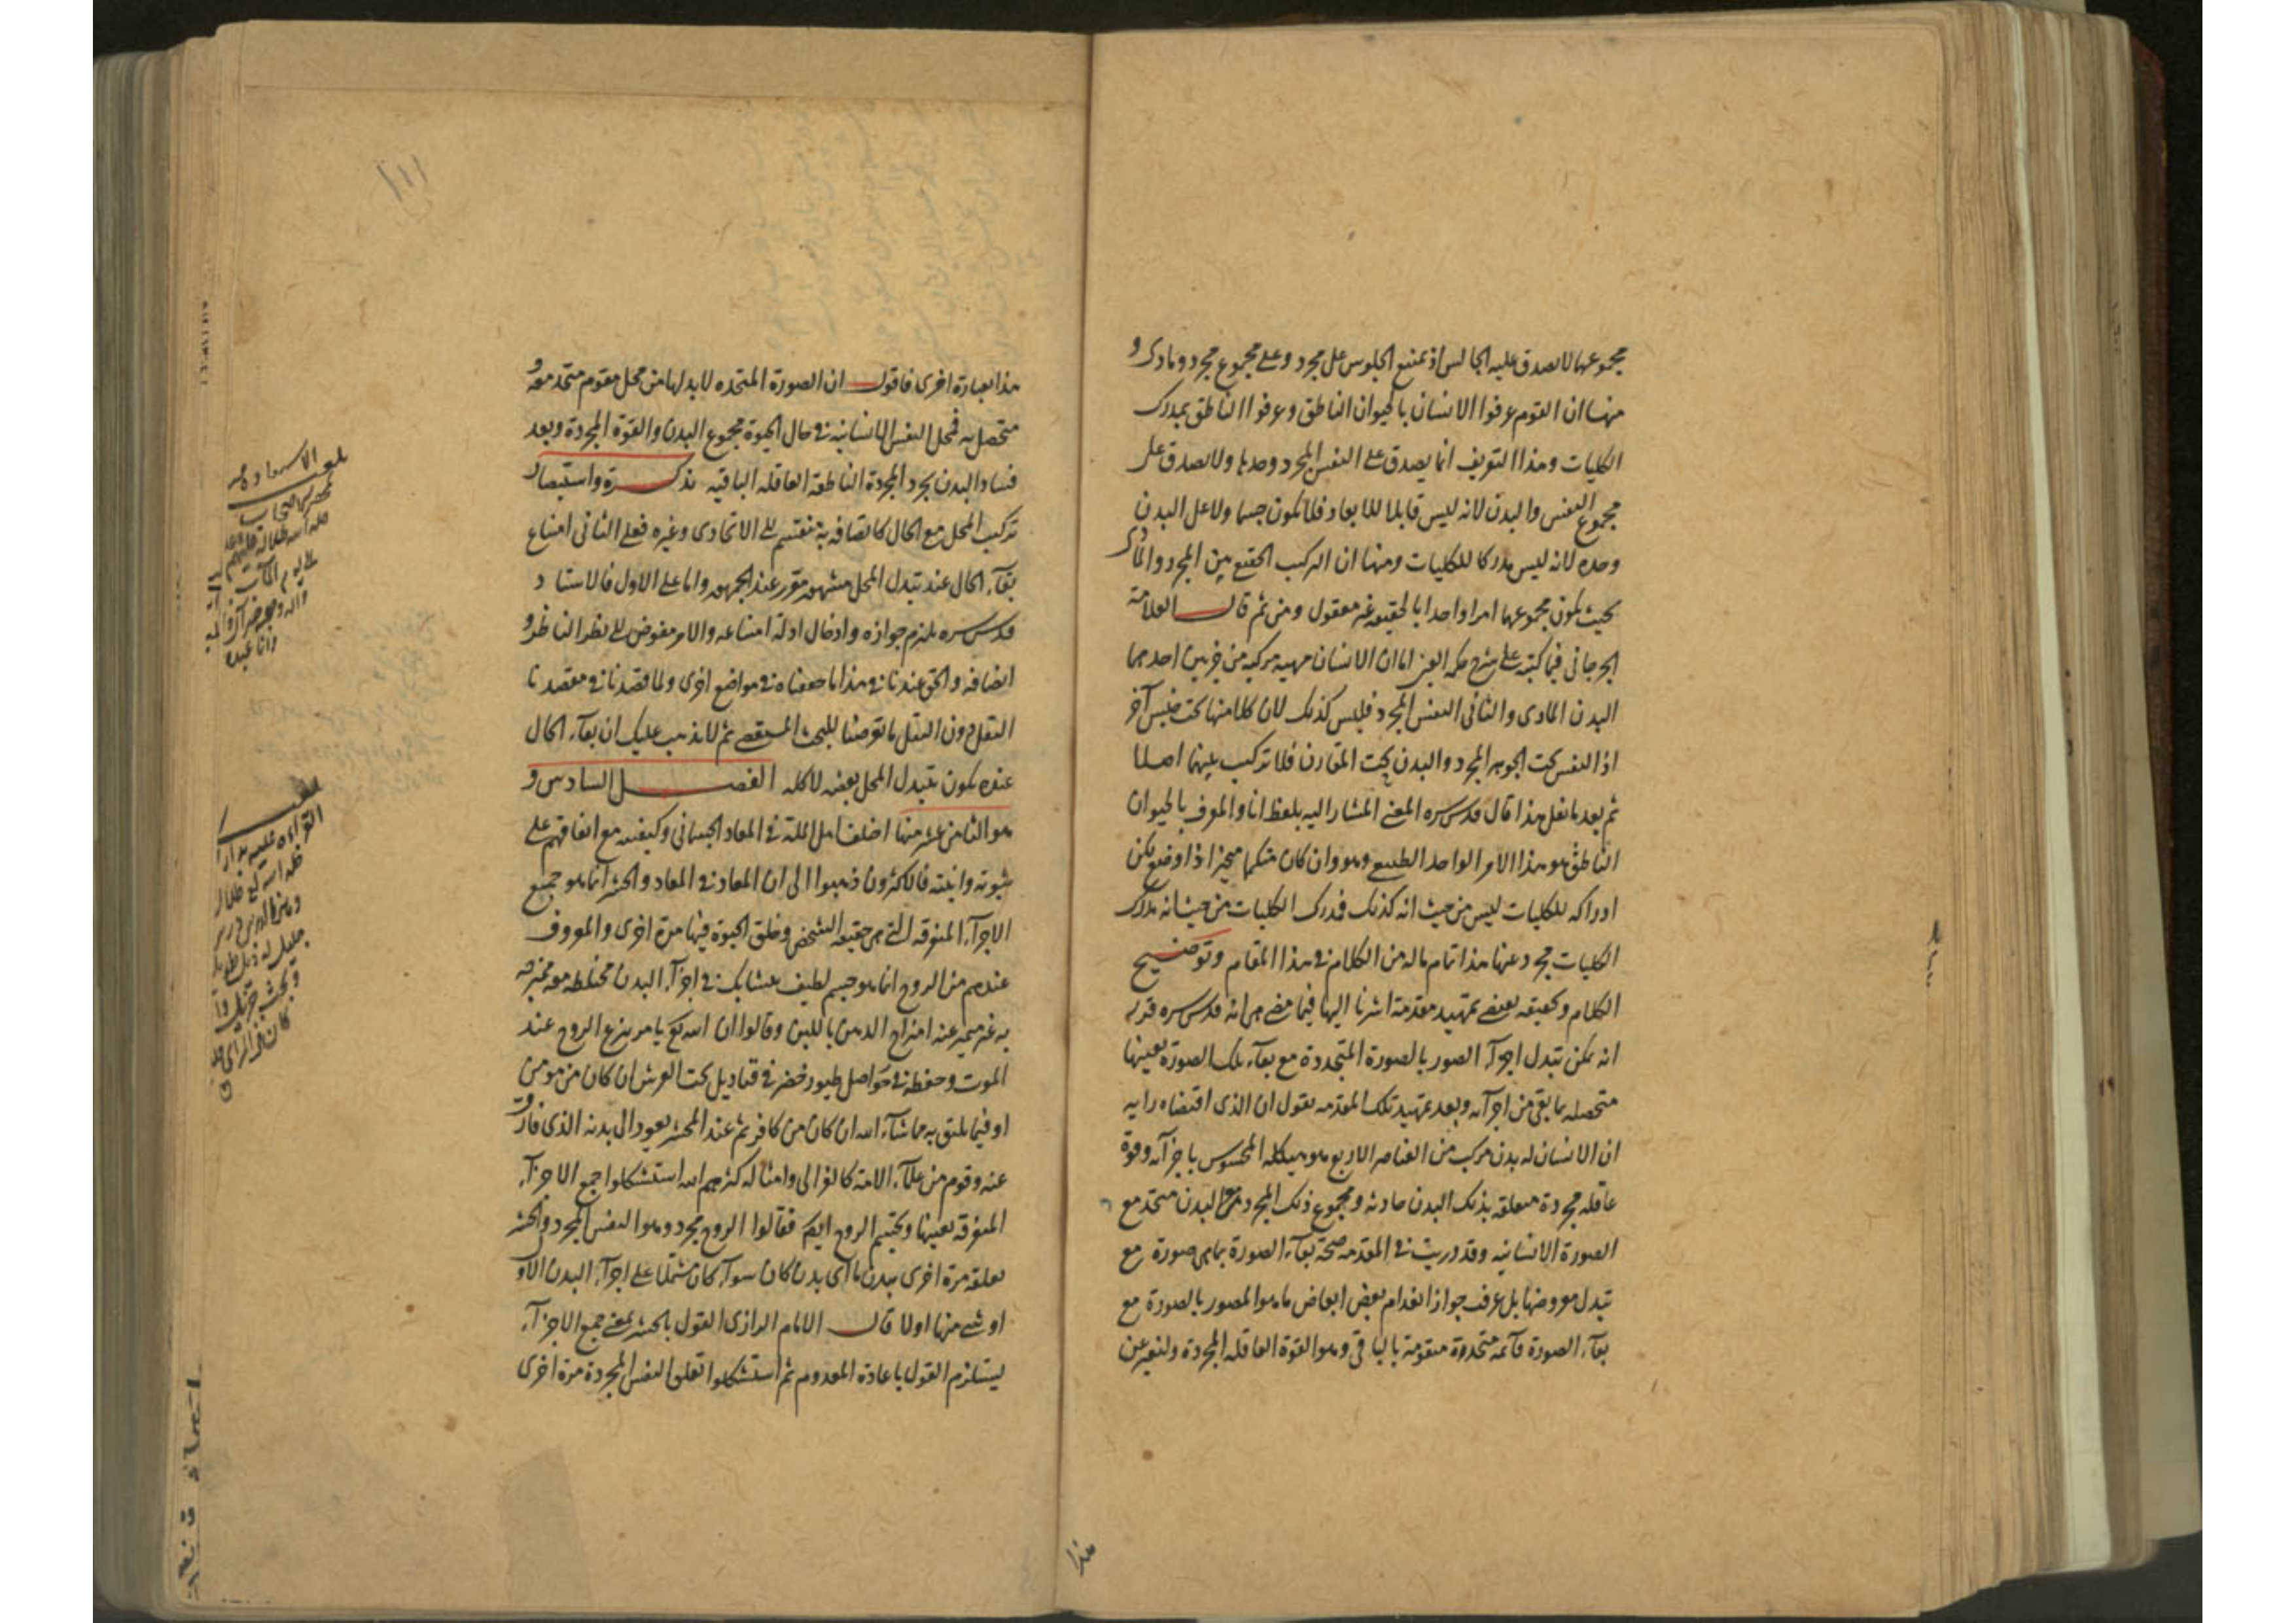 مجموعهما لا يصدق عليه الجالس اذ يمتنع الجلوس على مجرد وعلى مجموع مجرد ومادى و
منها ان القوم عرفوا الانسان بالحيوان الناطق وعرفوا الناطق بمدرك
الكليات وهذا التعريف انما يصدق على النفس المجرد وحدها ولا يصدق على
مجموع النفس والبدن لانه ليس قابلا للابعاد فلا يكون جسما ولا على البدن
وحده لانه ليس مدركا للكليات ومنها ان التركيب الحقيقى بين المجرد والمادى
بحيث يكون مجموعهما امرا واحدا بالحقيقة غير معقول ومن ثم قال العلامة
الجرجانى فيما كتبه على شرح حكمة العين اما ان الانسان مهية مركبة من جزئين احدهما
البدن المادى والثانى النفس المجرد فليس كذلك لان كلا منهما تحت جنس آخر
اذ النفس تحت الجوهر المجرد والبدن تحت المقارن فلا تركيب بينهما اصلا
ثم بعد ما نقل هذا قال قدس سره المعنى المشار اليه بلفظ انا والمعرف بالحيوان
الناطق هو هذا الامر الواحد الطبيعى وهو وان كان متكمما متحيزا ذا وضع لكن
ادراكه للكليات ليس من حيث انه كذلك فمدرك الكليات من حيث انه مدرك
الكليات مجرد عنها هذا تمام ماله من الكلام فى هذا المقام وتوضيح
الكلام وتحقيقه يقتضى تمهيد مقدمة اشرنا اليها فيما مضى هى انه قدس سره قدر
انه يمكن تبدل اجزآء الصور بالصورة المتجددة مع بقآء تلك الصورة بعينها
متحصله بما بقى من اجزآئه وبعد تمهيد تلك المقدمه نقول ان الذى اقتضاه رايه
ان الانسان له بدن مركب من العناصر الاربع هو هيكله المحسوس باجزآئه وقوة
عاقلة مجردة متعلقة بذلك البدن حادثه ومجموع ذلك المجرد مع البدن متحد مع
الصورة الانسانيه وقد دريت فى المقدمه صحة بقآء الصورة بما هى صورة مع
تبدل معروضها بل عرفت جواز انعدام بعض ابعاض ما هو المصور بالصورة مع
بقآء الصورة قآئمة متحدة متقومة بالباقى وهو القوة العاقلة المجردة ولنعبر عن
هذا
هذا بعبارة اخرى فاقول ان الصورة المتحده لا بد لها من محل مقوم متحد معه و
متحصل به فمحل النفس الانسانيه فى حال الحيوة مجموع البدن والقوة المجردة وبعد
فساد البدن مجرد المجردة الناطقة العاقلة الباقيه تذكرة واستبصار
تركيب المحل مع الحال كاتصافه به منقسم الى الاتحادى وغيره فعلى الثانى امتناع
بقآء الحال عند تبدل المحل مشهور مقرر عند الجمهور واما على الاول فالاستاد
قدس سره يلتزم جوازه وادخال ادلة امتناعه والامر مفوض الى نظر الناظر و
انصافه والحق عندنا فى هذا ما حققناه فى مواضع اخرى ولما قصدنا فى مقصدنا
النقل دون النقل ما تعرضنا للبحث المستقصى ثم لا يذهب عليك ان بقآء الحال
عنده يكون بتبدل المحل بعضه لا كله الفصل السادس و
هو الثامن عشر منها اختلف اهل الملة فى المعاد الجسمانى وكيفيته مع اتفاقهم على
ثبوته وانيته فالاكثرون ذهبوا الى ان المعاد فى المعاد والحشر انما هو جميع
الاجزآء المتفرقه التى هى حقيقة الشخص وخلق الحيوة فيها مرة اخرى والمعروف
عندهم من الروح انما هو جسم لطيف متشابك فى اجزآء البدن مختلطة معه ممتزجه
به غير متميز عنه امتزاج الدهن باللبن وقالوا ان الله تع يامر بنزع الروح عند
الموت وحفظه فى حواصل طيور خضر فى قناديل تحت العرش ان كان من مومن
او فيما يليق به ما شآء الله ان كان من كافر ثم عند المحشر يعود الى بدنه الذى فارق
عنه وقوم من علمآء الامة كالغزالى وامثاله كثرهم الله استشكلوا جمع الاجزآء
المتفرقة بعينها وتجسيم الروح ايضا فقالوا الروح مجرد وهو النفس المجرد والحشر
تعلقه مرة اخرى ببدن ما اى بدن كان سوآء كان مشتملا على اجزآء البدن الاول
او شىء منها اولا قال الامام الرازى القول بالحشر بمعنى جمع الاجزآء
يستلزم القول باعادة المعدوم ثم استشكلوا تعلق النفس المجردة مرة اخرى